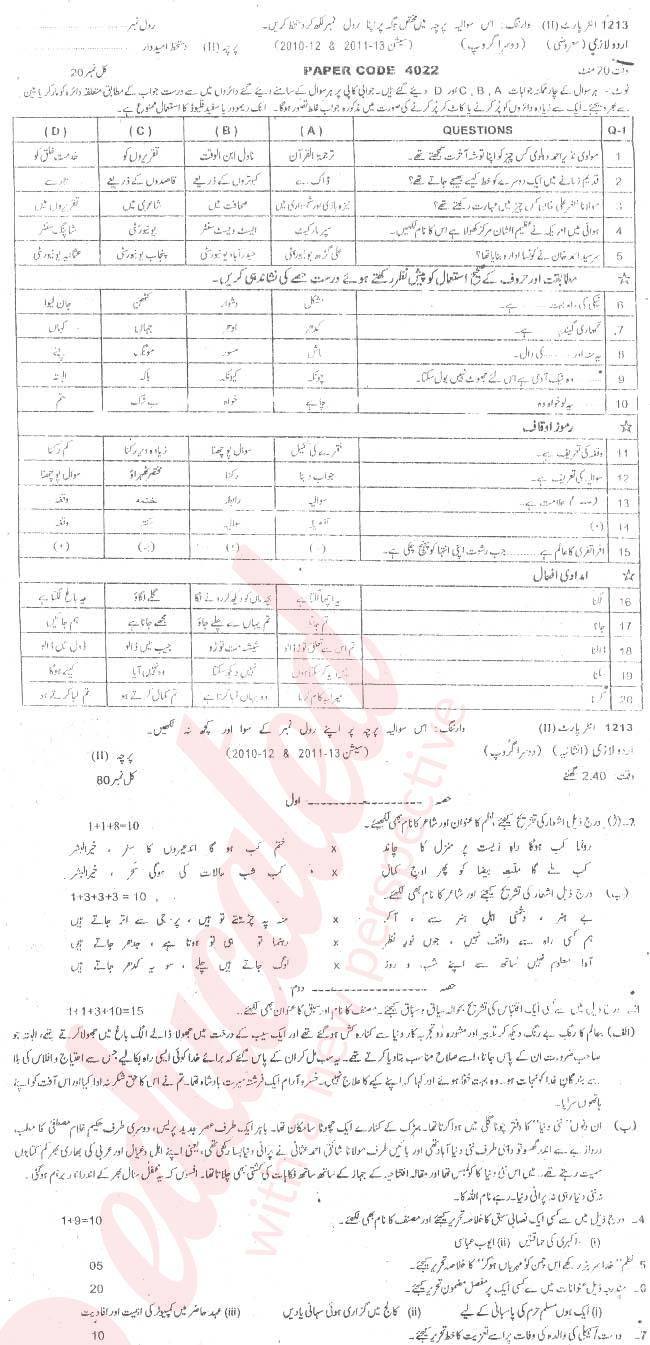 1213 انٹر پارٹ (II) وارننگ: اس سوالیہ پرچہ میں مختص جگہ پر اپنا رول نمبر لکھ کر دستخط کریں۔ رول نمبر
اردو لازمی (معروضی) (دوسرا گروپ) (سیشن 2011-13 & 2010-12) پرچہ (II) دستخط امیدوار
وقت 20 منٹ PAPER CODE 4022 کل نمبر 20
نوٹ - ہر سوال کے چار ممکنہ جوابات A ، B ، C اور D دیئے گئے ہیں۔ جوابی کاپی پر ہر سوال کے سامنے دیئے گئے دائروں میں سے درست جواب کے مطابق متعلقہ دائرہ کو مارکر یا پین
سے بھر دیجئے۔ ایک سے زیادہ دائروں کو پُر کرنے یا کاٹ کر پُر کرنے کی صورت میں مذکورہ جواب غلط تصور ہوگا۔ انک ریموور یا سفید فلیوڈ کا استعمال ممنوع ہے۔
Q-1 QUESTIONS (A) (B) (C) (D)
1 مولوی نذیر احمد دہلوی کس چیز کو اپنا توشہ آخرت سمجھتے تھے۔ ترجمۃ القرآن ناول ابن الوقت تقریروں کو خدمت خلق کو
2 قدیم زمانے میں ایک دوسرے کو خط کیسے بھیجے جاتے تھے؟ ڈاک سے کبوتروں کے ذریعے قاصدوں کے ذریعے
3 مولانا ظفر علی خان کس چیز میں مہارت رکھتے تھے؟ نیزہ بازی اور شہسواری میں صحافت میں شاعری میں تقریروں میں
4 ہوائی میں امریکہ نے عظیم الشان مرکز کھولا ہے اس کا نام لکھیں۔ سپر مارکیٹ ایسٹ ویسٹ سنٹر یونیورسٹی شاپنگ سنٹر
5 سر سید احمد خان نے کونسا ادارہ بنایا تھا؟ علی گڑھ یونیورسٹی حیدرآباد یونیورسٹی پنجاب یونیورسٹی عثمانیہ یونیورسٹی
☆ مطابقت اور حروف کے صحیح استعمال کو پیش نظر رکھتے ہوئے درست جملے کی نشاندہی کریں۔
6 نیکی کی راہ بہت ہے۔ مشکل دشوار کٹھن جان لیوا
7 تمھاری گیند ہے۔ کدھر ادھر جہاں کہاں
8 یہ سند اور ....... کی دال۔ ماش مسور مونگ چنے
9 ....... وہ نیک آدمی ہے اس لئے جھوٹ نہیں بول سکتا۔ چونکہ کیونکہ بلکہ البتہ
10 یہ لو خواہ وہ چاہے خواہ بے شک تم
☆ رموز اوقاف
11 وقفہ کی تعریف ہے۔ فقرے کی تکمیل سوال پوچھنا زیادہ دیر رکنا کم رکنا
12 سوالیہ کی تعریف ہے۔ جواب دینا رکنا مختصر ٹھہراؤ سوال پوچھنا
13 علامت ہے۔ سوالیہ رابطہ ختمہ وقفہ
14 سوالیہ وقفہ
15 افراتفری کا عالم ہے ....... جب رشوت اپنی انتہا کو پہنچ چکی ہے۔
☆ امدادی افعال
16 لگنا یہ اچھا لگتا ہے بچہ ماں کو دیکھ کر رونے لگا گلے لگاؤ یہ باغ لگتا ہے
17 جانا تم جانا تم یہاں سے چلے جاؤ مجھے جانا ہے ہم جائیں
18 ڈالنا تم اس سے تعلق توڑ ڈالو شیشہ مت توڑو جیب میں ڈالو
19 نہیں دیکھ سکتا وہ نہیں آیا کیسے ہوگا
20 کرنا میرا یہ کام کرنا وہ یہاں آیا کرتا ہے تم کمال کرتے ہو تم کیا کرتے ہو
1213 انٹر پارٹ (II) وارننگ: اس سوالیہ پرچہ پر اپنے رول نمبر کے سوا اور کچھ نہ لکھیں۔
اردو لازمی (انشائیہ) (دوسرا گروپ) (سیشن 2011-13 & 2010-12) پرچہ (II)
وقت 2.40 گھنٹے کل نمبر 80
حصہ اول
2- (الف) درج ذیل اشعار کی تشریح کیجئے، نظم کا عنوان اور شاعر کا نام بھی لکھئے۔ 1+1+8=10
رونما کب ہوگا راہ زیست پر منزل کا چاند x ختم کب ہو گا اندھیروں کا سفر ، خیر البشر
کب ملے گا ملت بیضا کو پھر اوج کمال x کب شب حالات کی ہوگی سحر ، خیر البشر
(ب) درج ذیل اشعار کی تشریح کیجئے اور شاعر کا نام بھی لکھئے۔ 1+3+3+3=10
بے ہنر ، دشمنی اہل ہنر سے ، آ کر x منہ پہ چڑھتے تو ہیں ، پر جی سے اتر جاتے ہیں
ہم کسی راہ سے واقف نہیں ، جوں نور نظر x رہنما تو ہی تو ہوتا ہے ، جدھر جاتے ہیں
آہ! معلوم نہیں ساتھ سے اپنے شب و روز x لوگ جاتے ہیں چلے ، سو یہ کدھر جاتے ہیں
حصہ دوم
3- درج ذیل میں سے کسی ایک اقتباس کی تشریح بحوالہ سیاق و سباق کیجئے۔ مصنف کا نام اور سبق کا عنوان بھی لکھئے۔ 1+1+3+10=15
(الف) عالم کا رنگ بے رنگ دیکھ کر تدبیر اور مشورہ دو تجربہ کار دنیا سے کنارہ کش ہو گئے تھے اور ایک سیب کے درخت میں جھولا ڈالے الگ باغ میں جھولا کرتے تھے، البتہ جو
صاحب ضرورت ان کے پاس جاتا، اسے صلاح مناسب بتا دیا کرتے تھے۔ یہ سب مل کر ان کے پاس گئے کہ برائے خدا کوئی ایسی راہ نکالیے جس سے احتیاج و افلاس کی بلا
سے بندگان خدا کو نجات ہو۔ وہ بہت خفا ہوئے اور کہا کہ اپنے کیے کا علاج نہیں۔ خسرو آرام ایک فرشتہ سیرت بادشاہ تھا۔ تم نے اس کا حق شکر نہ ادا کیا اور اس آفت کو اپنے
ہاتھوں سر لیا۔
(ب) ان دنوں "نئی دنیا" کا دفتر چونا گلی میں ہوا کرتا تھا۔ سڑک کے کنارے ایک چھوٹا سا مکان تھا۔ باہر ایک طرف عصر جدید پریس، دوسری طرف حکیم غلام مصطفیٰ کا مطب
دروازے سے اندر گھسو تو داہنی طرف نئی دنیا آباد تھی اور بائیں طرف مولانا شائق احمد عثمانی نے پرانی دنیا بسا رکھی تھی، یعنی اپنے اہل و عیال اور عربی کی بھاری بھر کم کتابوں
سمیت رہتے تھے۔ میں اس نئی دنیا کا کولمبس تھا اور مقالہ افتتاحیہ کے جہاز کے ساتھ ساتھ فکاہات کی کشتی بھی چلاتا تھا۔ افسوس کہ یہ محفل سال بھر کے اندر اندر برہم ہو گئی۔
نہ نئی دنیا رہی نہ پرانی دنیا۔ رہے نام اللہ کا۔
4- درج ذیل میں سے کسی ایک نصابی سبق کا خلاصہ تحریر کیجئے اور مصنف کا نام بھی لکھئے۔ 1+9=10
(i) اکبری کی حماقتیں (ii) ایوب عباسی
5 نظم "خدا سرسبز رکھے اس چمن کو مہرباں ہو کر" کا خلاصہ تحریر کیجئے۔ 05
6- مندرجہ ذیل عنوانات میں سے کسی ایک پر مفصل مضمون تحریر کیجئے۔ 20
(i) ایک ہوں مسلم حرم کی پاسبانی کے لیے (ii) کالج میں گزاری ہوئی سہانی یادیں (iii) عہد حاضر میں کمپیوٹر کی اہمیت اور افادیت
7- دوست/سہیلی کی والدہ کی وفات پر اسے تعزیت کا خط تحریر کیجئے۔ 10
educated
with a new perspective